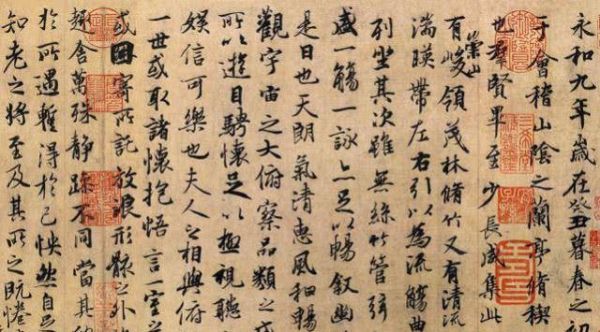 永和九年歲在癸丑暮春之初
于會稽山陰之蘭亭脩稧
也群賢畢至少長咸集此
有崇山峻領茂林脩竹又有清流
湍暎帶左右引以為流觴曲
列坐其次雖無絲竹管弦
盛一觴一詠亦足以暢敘幽
是日也天朗氣清惠風和暢
觀宇宙之大俯察品類之
所以遊目騁懷足以極視聽
娛信可樂也夫人之相與俯
一世或取諸懷抱悟言一室
或因寄所託放浪形骸之外
趣舍萬殊靜躁不同當其
於所遇蹔得於己怏然自
知老之將至及其所之既惓